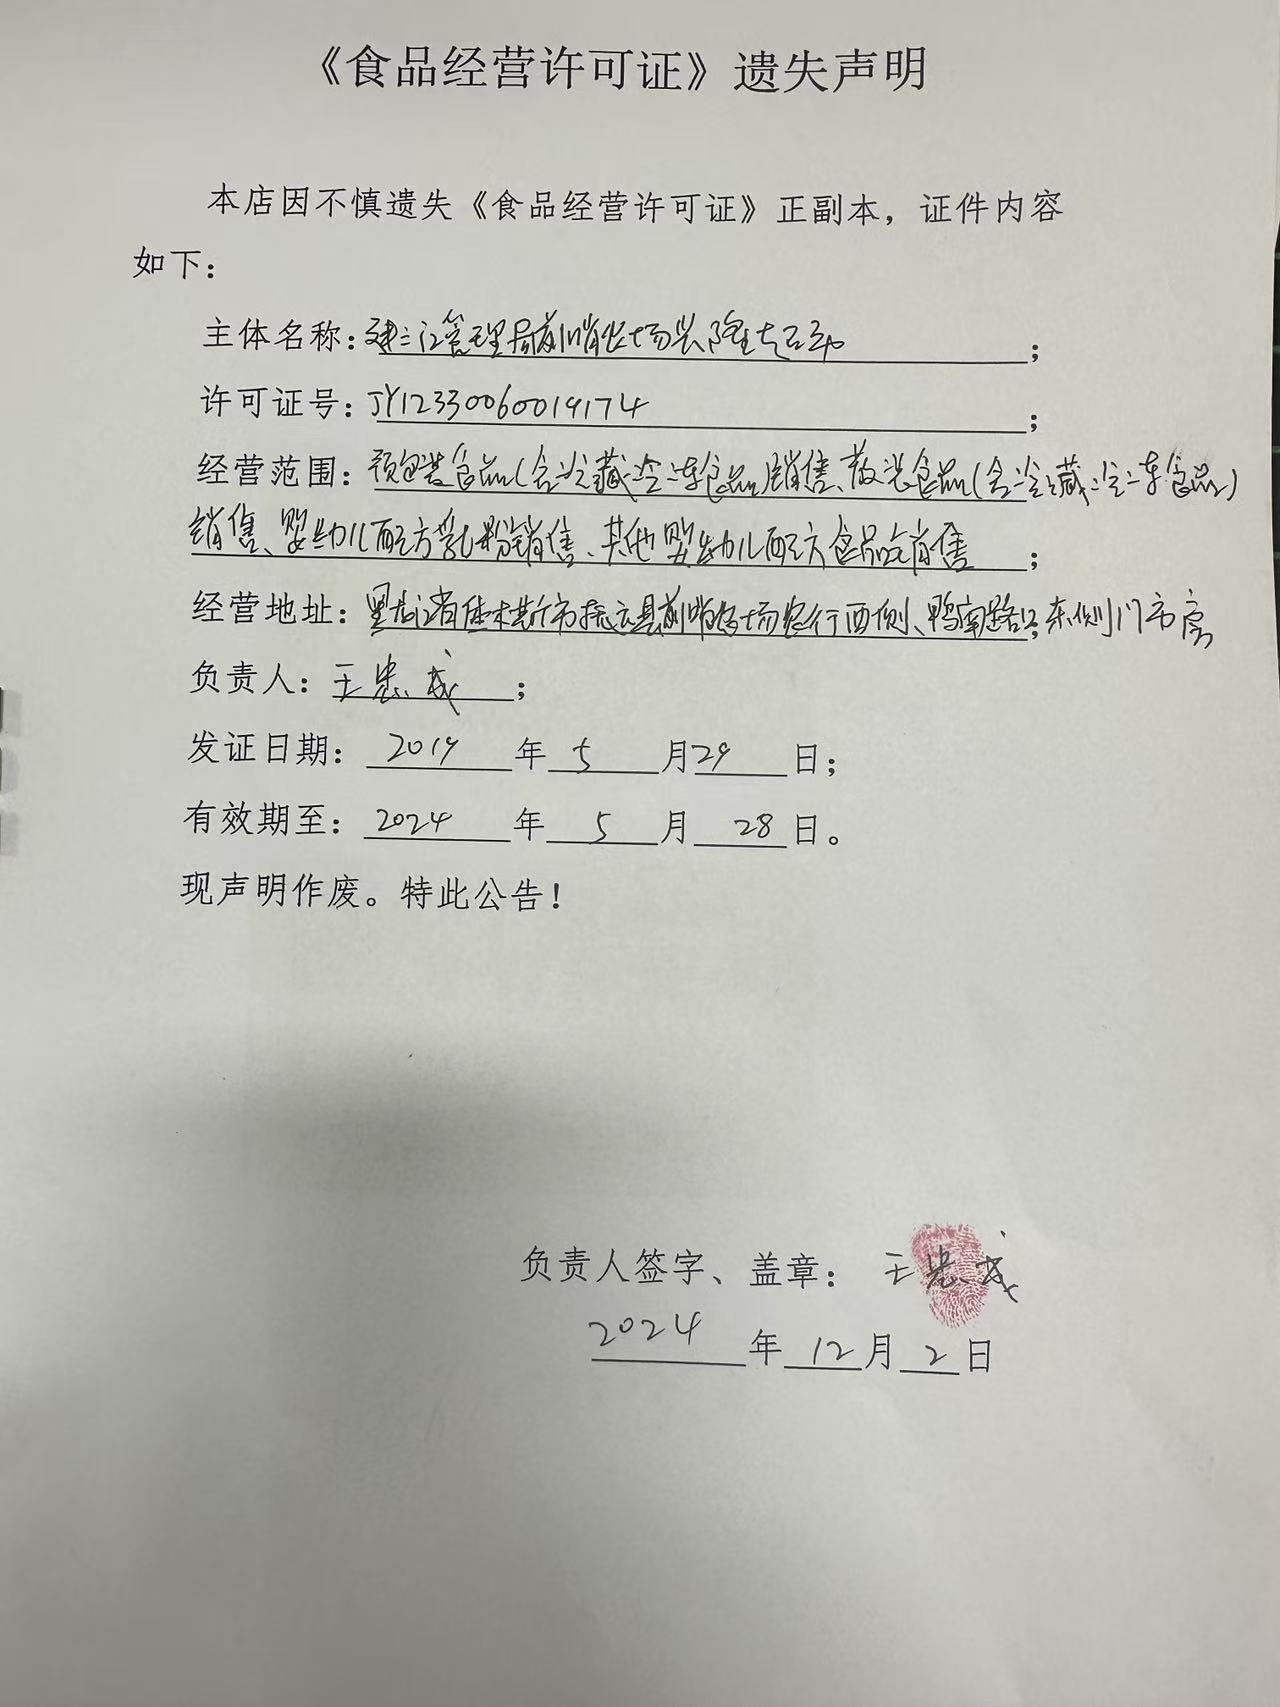 《食品经营许可证》遗失声明
本店因不慎遗失《食品经营许可证》正副本，证件内容
如下：
主体名称：建三江管理局前哨农场兴隆超市；
许可证号：JY12330060019174；
经营范围：预包装食品(含冷藏冷冻食品)销售、散装食品(含冷藏冷冻食品)
销售、婴幼儿配方乳粉销售、其他婴幼儿配方食品销售；
经营地址：黑龙江省佳木斯市抚远县前哨农场农行西侧、鸭南路口东侧门市房；
负责人：王忠成；
发证日期：2019年5月29日；
有效期至：2024年5月28日。
现声明作废。特此公告！
负责人签字、盖章：王忠成
2024年12月2日